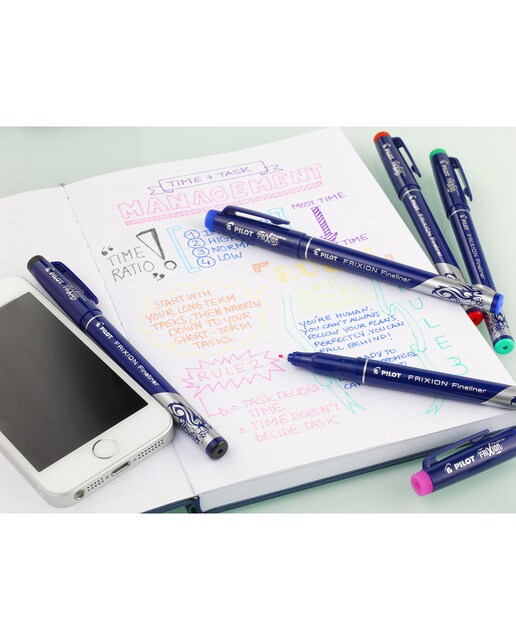 TIME + TASK
MANAGEMENT
"TIME RATIO"
!
1
2 HIGH
3 NORMAL
4 LOW
MOST TIME
TIME
START WITH
YOUR LONG TERM
TASKS, THEN NARROW
DOWN TO YOUR
SHORT-TERM
TASKS.
YOU'RE HUMAN,
YOU CAN'T ALWAYS
FOLLOW YOUR PLANS
PERFECTLY. YOU CAN
FALL BEHIND!
READY TO
RULE 2
TASK DECIDES
TIME.
TIME DOESN'T
DECIDE TASK.
RULE 3
PILOT FRIXION
PILOT FRIXION Fineliner
PILOT FRIXION Fineliner
PILOT FRIXION Fineliner
PILOT FRIXION Fineliner
PILOT
PILOT
PILOT FRIXION